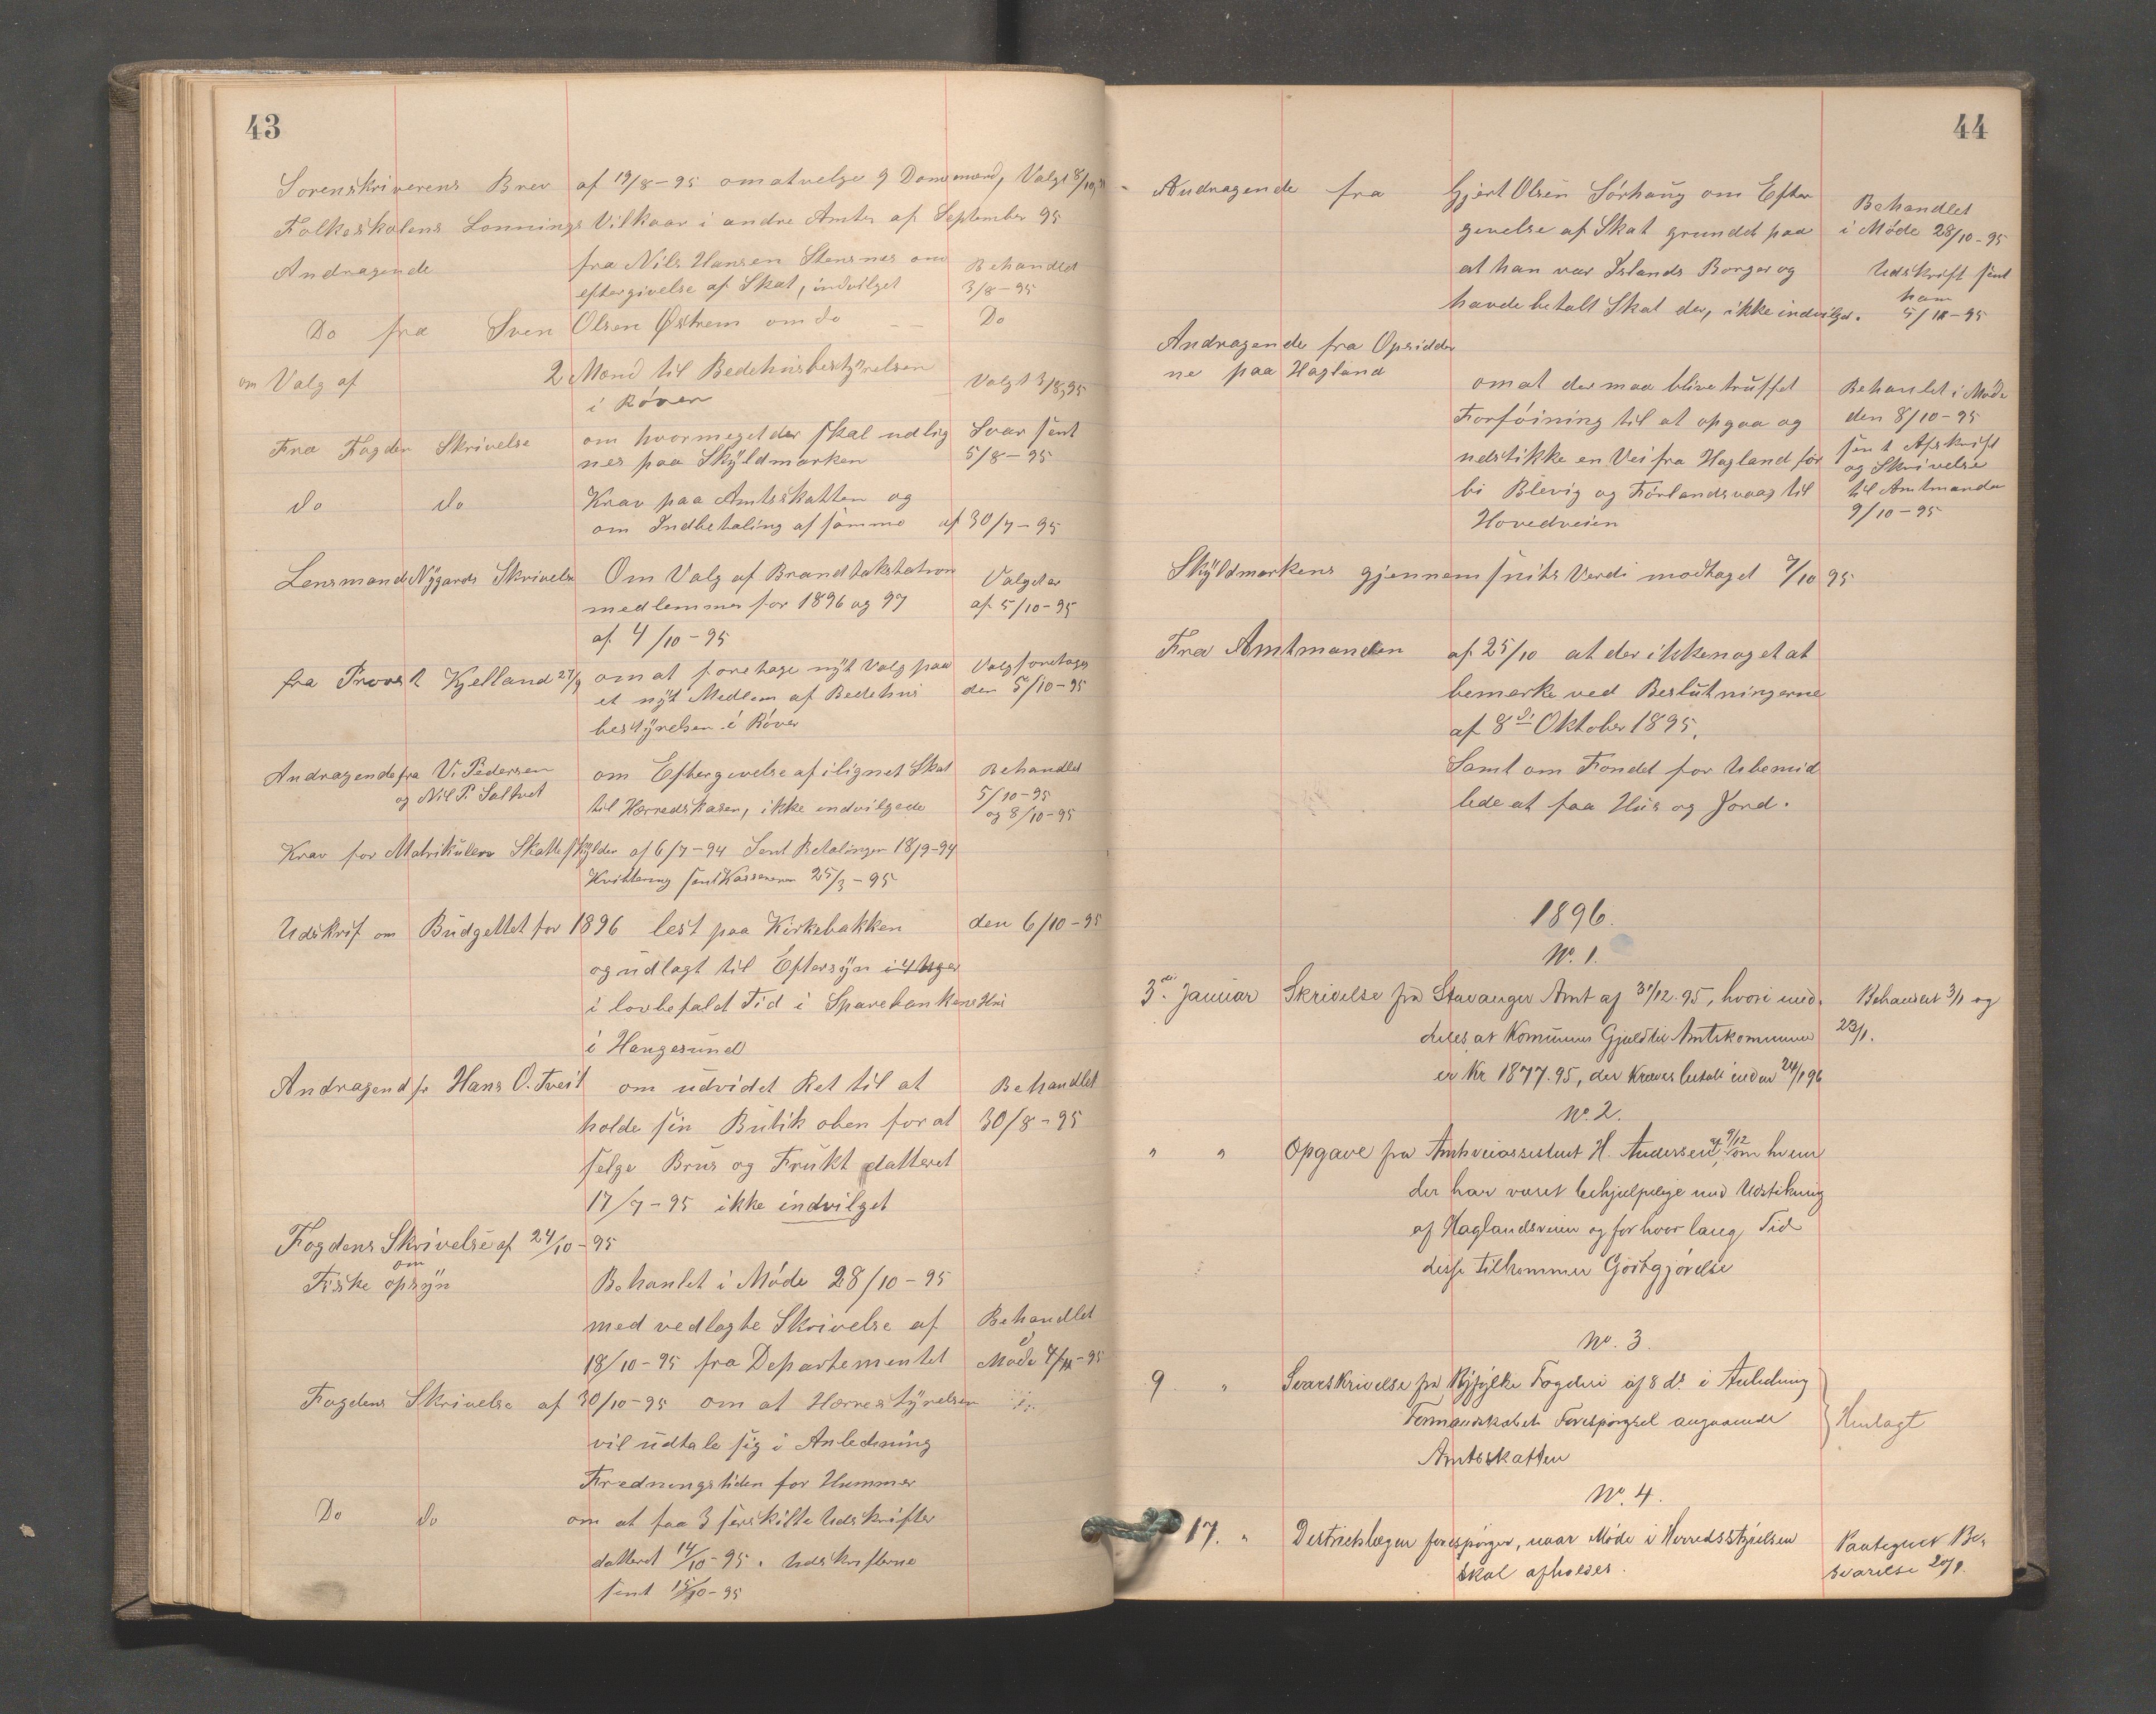 43
Sorenskriverens Brev af 19/8-95 om at velge 9 Domsmænd, Valgt 8/10
Folkeskolens Lonnings Vilkaar i andre Amter af September 95
Andragende fra Nils Hansen Stensnes om Behandlet
eftergivelse af Skat, indvilget 3/8-95
Do fra Sven Olsen Østrem om do — Do
om Valg af 2 Mænd til Bedehusbestÿrelsen Valgt 3/8 95
i Røver
Fra Fogden Skrivelse om hvormeget der skal udlig Svar sent
nes paa Skÿldmarken 5/8-95
do do Krav paa Amtsskatten og
om Indbetaling af samme af 30/7-95
Lensmand Nÿgaards Skrivelse Om Valg af Brandtakstations Valget er
medlemmer for 1896 og 97 af 5/10-95
af 4/10-95
fra Provst Kjelland 27/9 om at foretage nÿt Valg paa Valg foretages
et nÿt Medlem af Bedehus den 5/10-95
bestÿrelsen i Røver
Andragende fra V. Pedersen om Eftergivelse af ilignet Skat Behandlet
og Nil P. Saltvet til Herredskasen, ikke indvilgede 5/10-95
og 8/10-95
Krav for Matrikulens Skatteskÿlder af 6/7-94 Sent Betalingen 18/9-94
Kvittering sent Kasseren 25/3-95
Udskrif om Budgettet for 1896 lest paa Kirkebakken den 6/10-95
og udlagt til Eftersÿn i 4 Uger
i lovbefalet Tid i Sparebankens Hus
i Haugesund
Andragend fr Hans O. Tveit om udvidet Ret til at Behandlet
holde sin Butik oben for at 30/8-95
selge Brus og Frukt datteret
17/7-95 ikke indvilget
Fogdens Skrivelse af 24/10-95
om
Fiske opsÿn Behanlet i Møde 28/10-95
med vedlagte Skrivelse af Behandlet
18/10-95 fra Departementet i Møde 4/11-95
Fogdens Skrivelse af 30/10-95 om at Herrestÿrelsen
vil udtale sig i Anledning
Fredningstiden for Hummer
Do do om at faa 3 serskilte Udskrifter
datteret 14/10-95. Udskrifterne
sent 15/10-95
44
Andragende fra Gjert Olsen Sørhaug om Efter Behandlet
givelse af Skat grundet paa i Møde 28/10-95
at han var Islands Borger og Udskrift sent
havde betalt Skat der, ikke indvilget. ham 5/11-95
Andragende fra Opsidder
ne paa Hagland om at der maa blive truffet Behanlet i Møde
Forføining til at opgaa og den 8/10-95
udstikke en Vei fra Hagland for sent Afskrift
bi Blevig og Førlandsvaag til og Skrivelse
Hovedveien til Amtmanden
9/10-95
Skÿldmarkens gjennemsnits Verdi modtaget 7/10 95
Fra Amtmanden af 25/10 at der ikke noget at
bemerke ved Beslutningerne
af 8de Oktober 1895.
Samt om Fondet for Ubemid
lede at faa Hus og Jord.
1896.
No. 1.
3de Januar Skrivelse fra Stavanger Amt af 31/12.95, hvori med- Behandlet 3/1 og
deles at Komunens Gjæld til Amtskommunen 23/1.
er Kr 1877.95, der kræves betalt inden 24/1 96
No. 2.
" " Opgave fra Amtsveiassistent H. Andersen af 9/12 om hvem
der har været behjelpelige med Udstikning
af Haglandsveien og for hvor lang Tid
disse tilkommer Godtgjørelse
No. 3.
9 " Svarskrivelse fra Ryfylke Fogderi af 8 ds. i Anledning
Formandskabets Forespørgsel angaaende Henlagt
Amtsskatten
No. 4.
17. " Distriktslægen forespørger, naar Møde i Herredsstyrelsen Paategnet Be-
skal afholdes. svarelse 20/1.